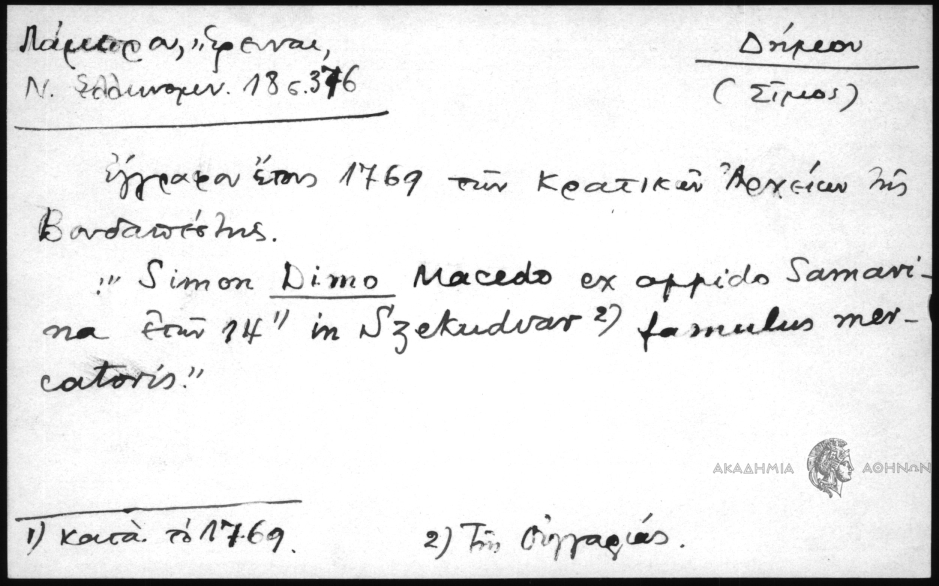 Λάμπρου, "Έρευναι,
Ν. Ελληνομν. 18 σ. 376
Δήμου
(Σίμος)
Έγγραφον έτους 1769 των Κρατικών Αρχείων της
Βουδαπέστης.
"Simon Dimo Macedo ex oppido Samari-
na ετών 14" in Szekudvar 2) famulus mer-
catoris."
ΑΚΑΔΗΜΙΑ ΑΘΗΝΩΝ
1) κατά το 1769.
2) Της Ουγγαρίας.